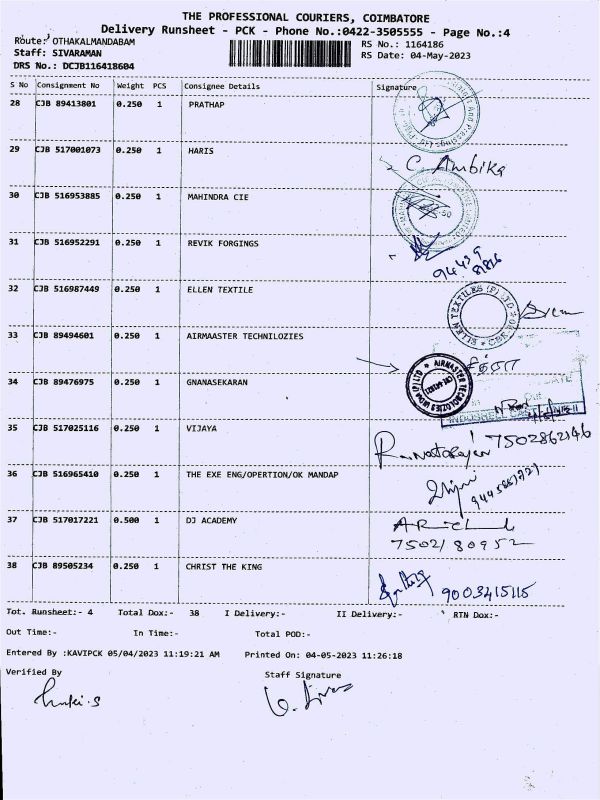 THE PROFESSIONAL COURIERS, COIMBATORE
Delivery Runsheet - PCK - Phone No.:0422-3505555 - Page No.:4
Route: OTHAKALMANDABAM RS No.: 1164186
Staff: SIVARAMAN RS Date: 04-May-2023
DRS No.: DCJB116418604
S No Consignment No Weight PCS Consignee Details Signature
28 CJB 89413801 0.250 1 PRATHAP
29 CJB 517001073 0.250 1 HARIS C. Ambika
30 CJB 516953885 0.250 1 MAHINDRA CIE
31 CJB 516952291 0.250 1 REVIK FORGINGS
32 CJB 516987449 0.250 1 ELLEN TEXTILE ELLEN TEXTILES (P) LTD
33 CJB 89494601 0.250 1 AIRMAASTER TECHNILOZIES
34 CJB 89476975 0.250 1 GNANASEKARAN
35 CJB 517025116 0.250 1 VIJAYA 7502862146
36 CJB 516965410 0.250 1 THE EXE ENG/OPERTION/OK MANDAP
37 CJB 517017221 0.500 1 DJ ACADEMY
7502180952
38 CJB 89505234 0.250 1 CHRIST THE KING 9003415115
Tot. Runsheet:- 4 Total Dox:- 38 I Delivery:- II Delivery:- RTN Dox:-
Out Time:- In Time:- Total POD:-
Entered By :KAVIPCK 05/04/2023 11:19:21 AM Printed On: 04-05-2023 11:26:18
Verified By Staff Signature